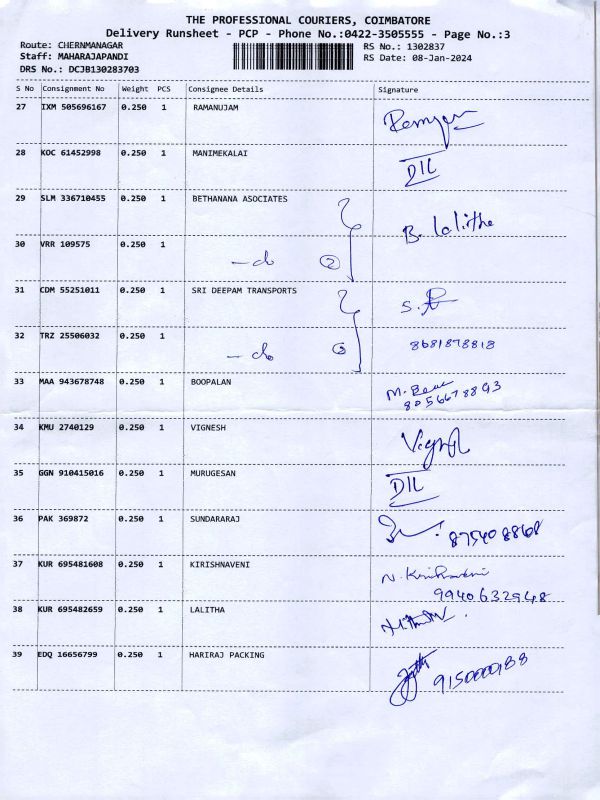 THE PROFESSIONAL COURIERS, COIMBATORE
Delivery Runsheet - PCP - Phone No.:0422-3505555 - Page No.:3
Route: CHERNMANAGAR
RS No.: 1302837
Staff: MAHARAJAPANDI
RS Date: 08-Jan-2024
DRS No.: DCJB130283703
S No Consignment No Weight PCS Consignee Details Signature
27 IXM 505696167 0.250 1 RAMANUJAM
28 KOC 61452998 0.250 1 MANIMEKALAI DIL
29 SLM 336710455 0.250 1 BETHANANA ASOCIATES B. lalitha
30 VRR 109575 0.250 1 -do 2
31 CDM 55251011 0.250 1 SRI DEEPAM TRANSPORTS
32 TRZ 25506032 0.250 1 -do 8681878818
33 MAA 943678748 0.250 1 BOOPALAN
8056678893
34 KMU 2740129 0.250 1 VIGNESH
35 GGN 910415016 0.250 1 MURUGESAN DIL
36 PAK 369872 0.250 1 SUNDARARAJ
37 KUR 695481608 0.250 1 KIRISHNAVENI
9940632948
38 KUR 695482659 0.250 1 LALITHA
39 EDQ 16656799 0.250 1 HARIRAJ PACKING